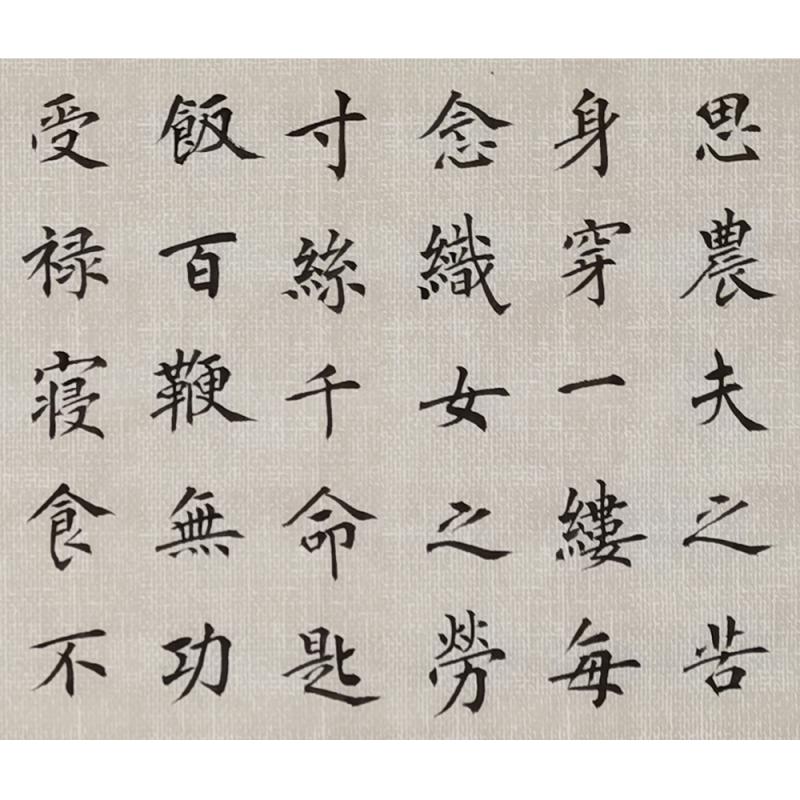 思農夫之苦
身穿一縷每
念織女之勞
寸絲千命匙
飯百鞭無功
受禄寝食不